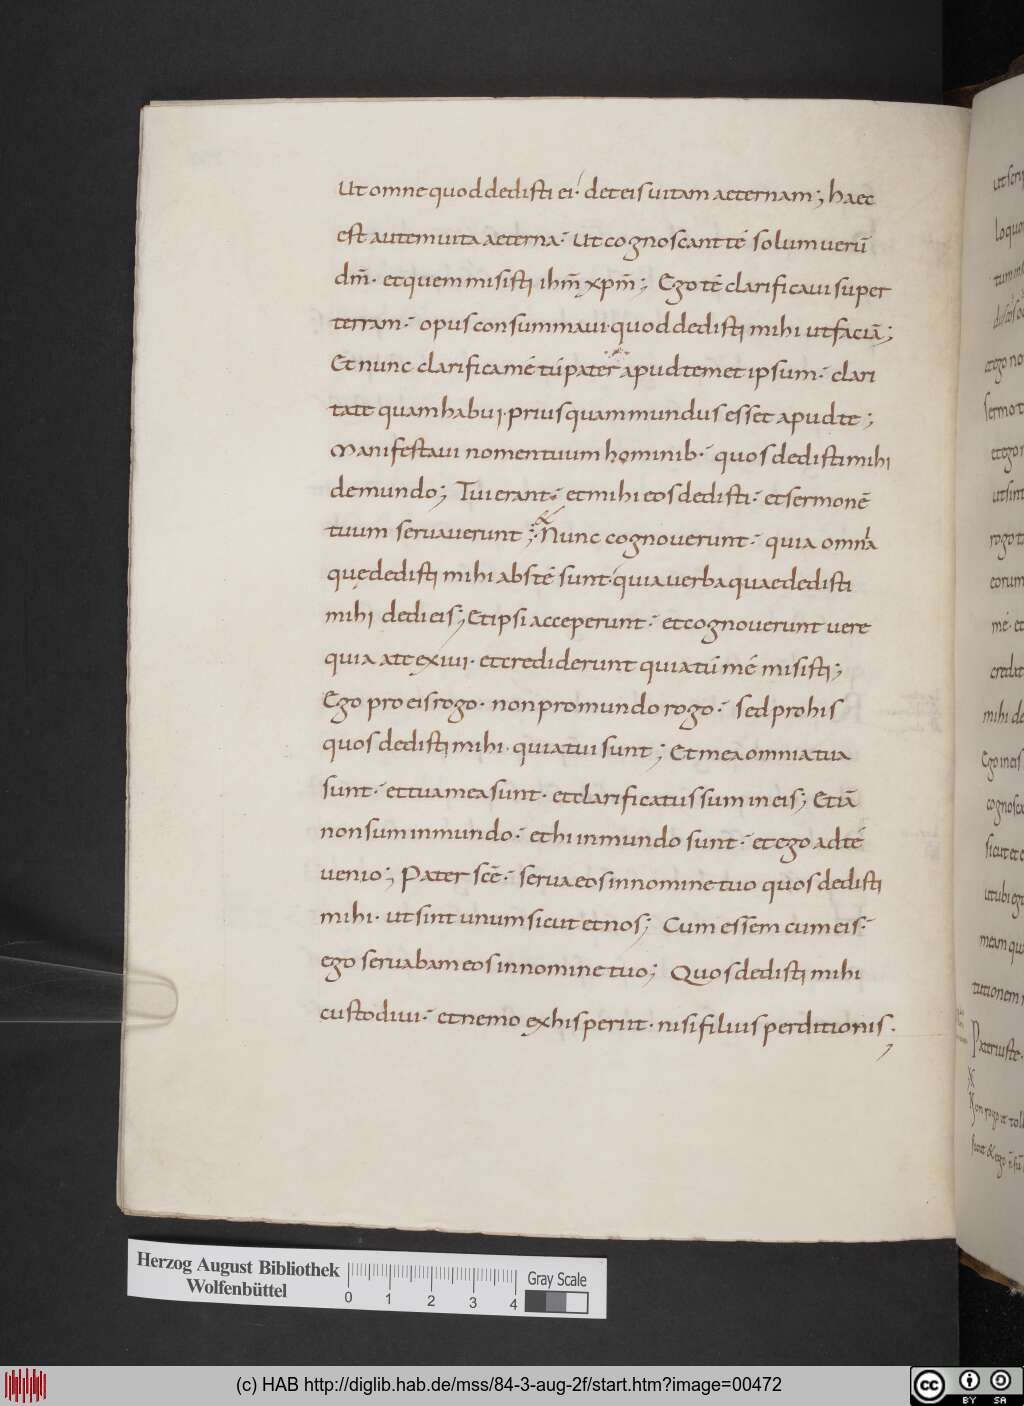 Ut omne quod dedisti ei· det eis uitam aeternam; haec
est autem uita aeterna· Ut cognoscant té solum uerū
dm̄· et quem misisti ihm̄ xpm̄; Ego té clarificaui super
terram· opus consummaui· quod dedisti mihi ut faciā;
Et nunc clarifica mé tú pater apud temet ipsum· clari
tate quam habui· prius quam mundus esset apud te;
Manifestaui nomen tuum hominib· quos dedisti mihi
de mundo; Tui erant· et mihi eos dedisti· et sermonē
tuum seruauerunt; Nunc cognouerunt· quia omnia
quę dedisti mihi abs té sunt· quia uerba quae dedisti
mihi dedi eis; Et ipsi acceperunt· et cognouerunt uere
quia a te exiui· et crediderunt quia tú mé misisti;
Ego pro eis rogo· non pro mundo rogo· sed pro his
quos dedisti mihi· quia tui sunt; Et mea omnia tua
sunt· et tua mea sunt· et clarificatus sum in eis; Et iā
non sum in mundo· et hi in mundo sunt· et ego ad té
uenio; Pater scē· serua eos in nomine tuo quos dedisti
mihi· ut sint unum sicut et nos; Cum essem cum eis·
ego seruabam eos in nomine tuo; Quos dedisti mihi
custodiui· et nemo ex his periit· nisi filius perditionis;
ut scrip
loquo
et ego no
sermo t
et ego n
ut sint
rogo t
eorum
mé· et
credat
mihi de
Ego in eis
cognosca
sicut et e
ut ubi ego
meam qu
tutionem
Pater iuste·
Non rogo ut toll
sicut & ego
Herzog August Bibliothek
Wolfenbüttel
0 1 2 3 4
Gray Scale
(c) HAB http://diglib.hab.de/mss/84-3-aug-2f/start.htm?image=00472
cc BY SA